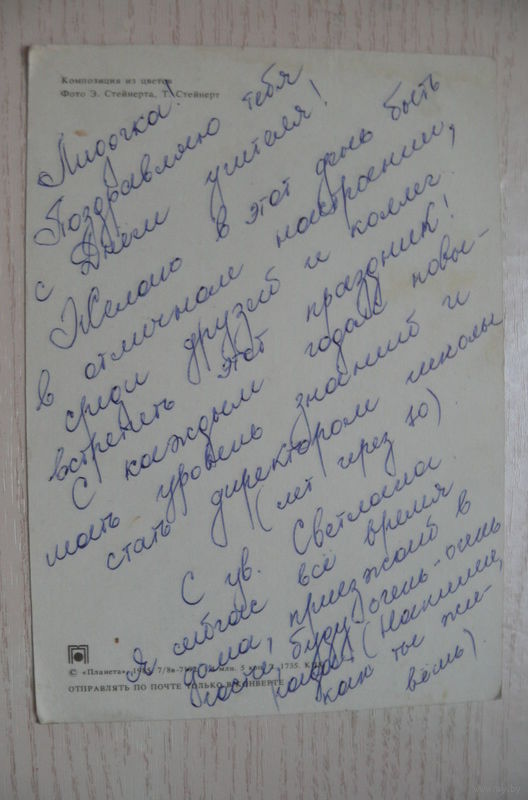 Композиция из цветов
Фото Э. Стейнерта, Т. Стейнерт
Лидочка!
Поздравляю тебя
с Днём учителя!
Желаю в этот день быть
в отличном настроении,
среди друзей и коллег
встретить этот праздник!
С каждым годом повы-
шать уровень знаний и
стать директором школы
(лет через 10)
С ув. Светлана.
Я сейчас всё время
дома, приезжай в
гости, буду очень-очень
рада! (Напиши,
как ты жи-
вёшь).
© «Планета» 7/8в 5 1735.
ОТПРАВЛЯТЬ ПО ПОЧТЕ ТОЛЬКО В КОНВЕРТЕ